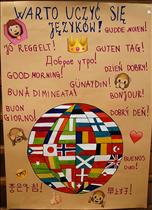 WARTO UCZYĆ SIĘ
JĘZYKÓW!
GUDDE MOIEN!
JÓ REGGELT!
GUTEN TAG!
Доброе утро!
DZIEŃ DOBRY!
GOOD MORNING!
GÜNAYDIN!
BUNĂ DIMINEAȚA!
BONJOUR!
BUON
GIORNO!
DOBRÝ DEŇ!
BUENOS
DIAS!
早上好!